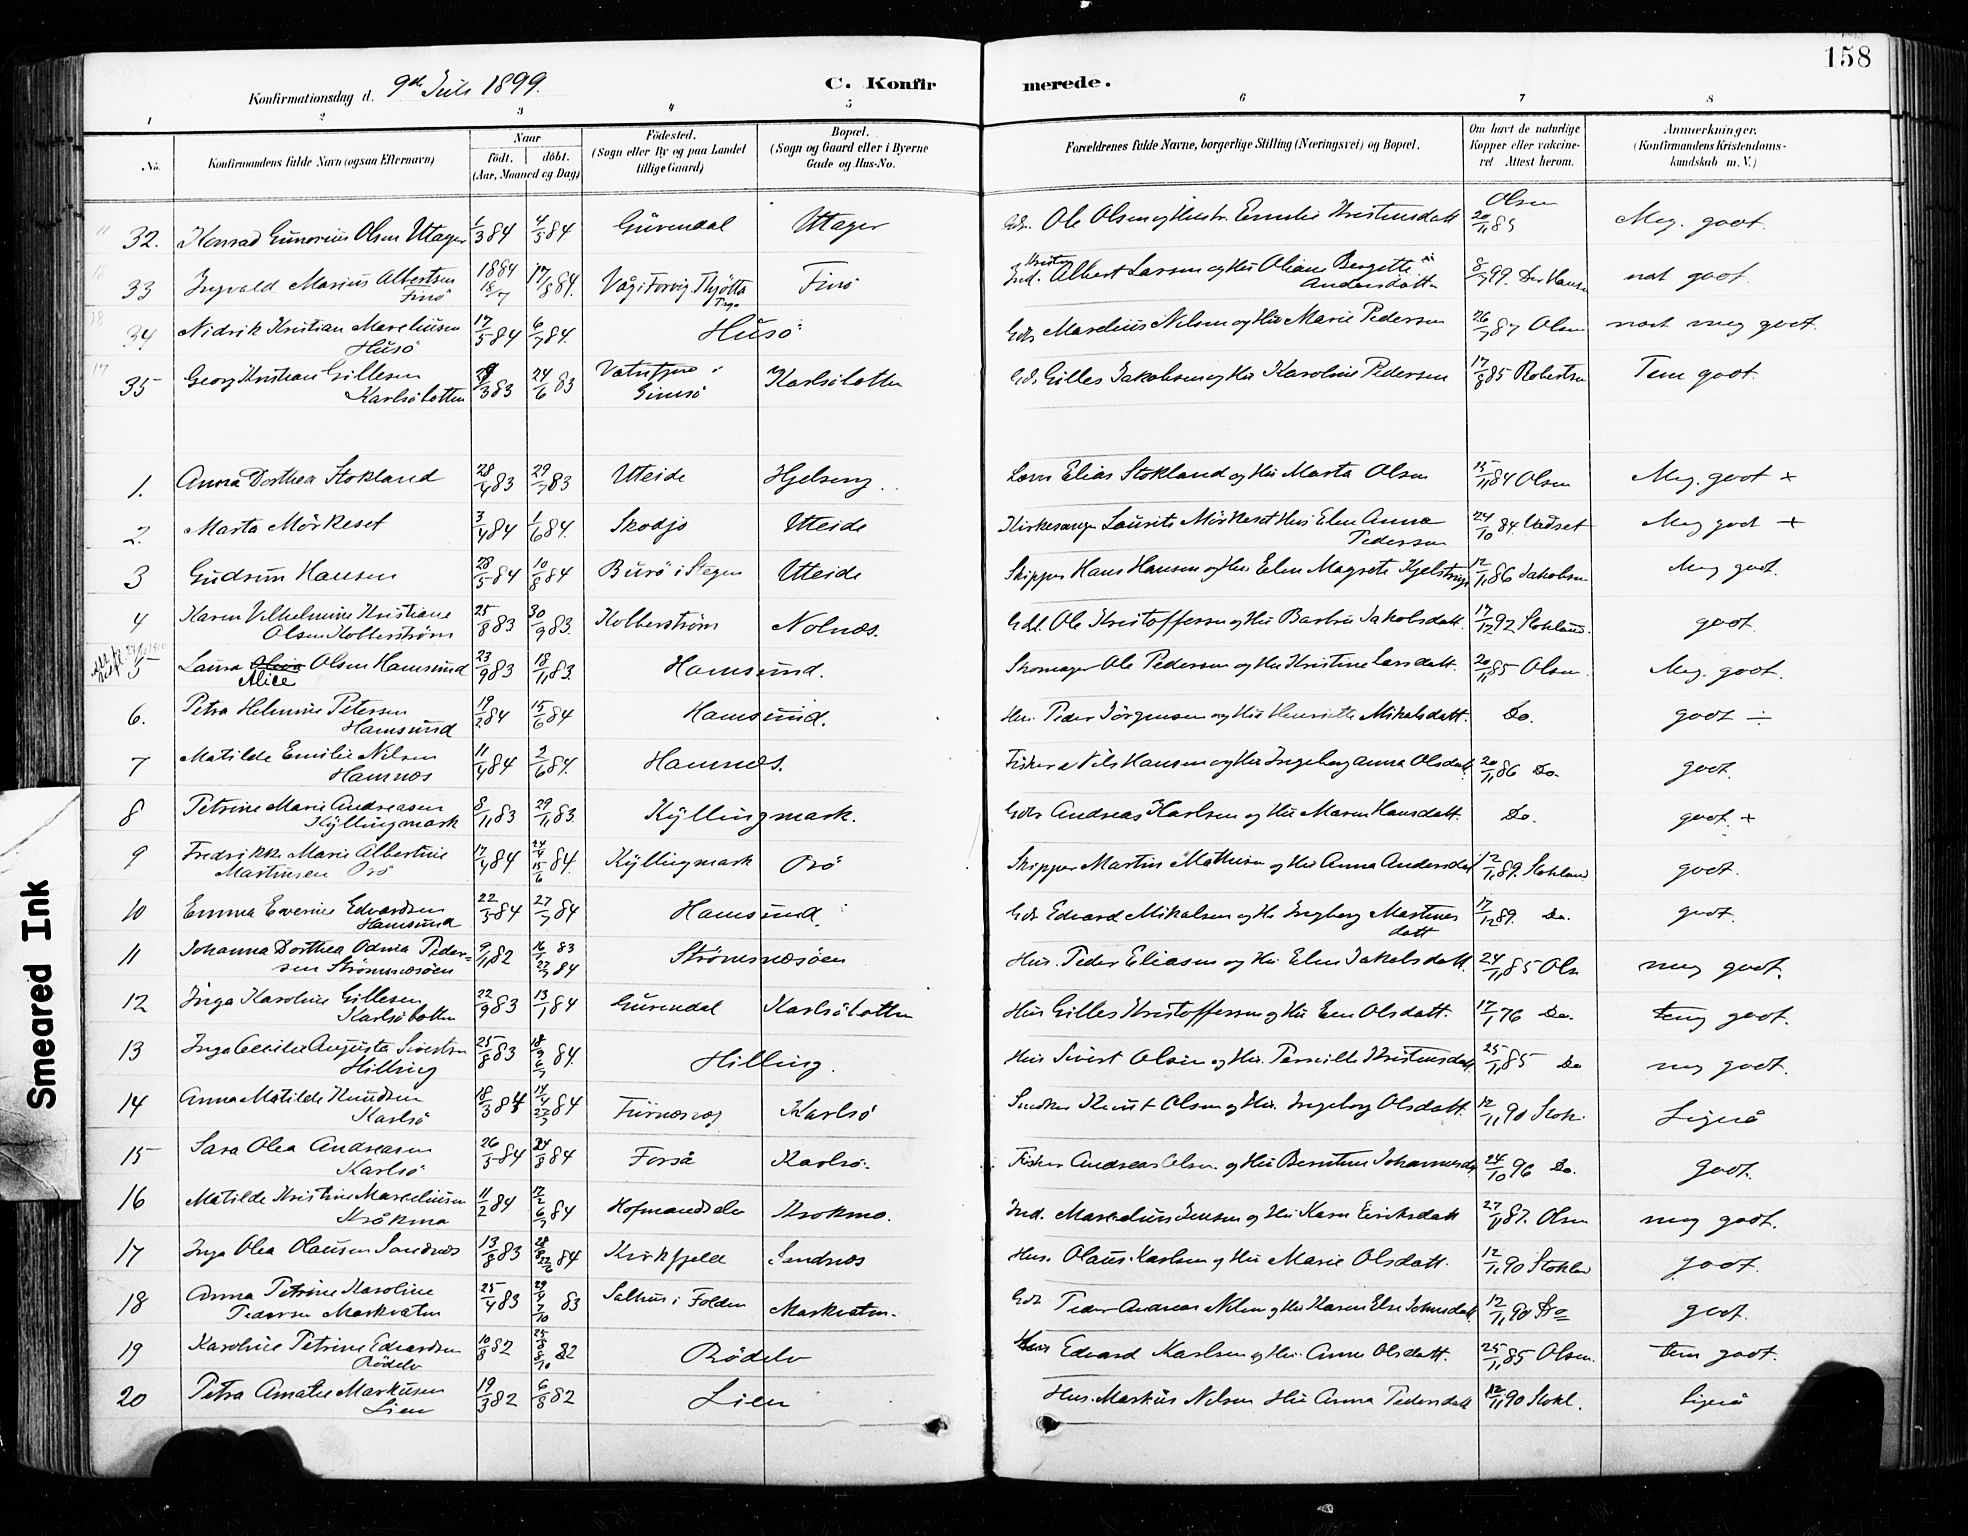 158
Konfirmationsdag d. 9de Juli 1899.
C. Konfirmerede.
1 2 3 4 5 6 7 8
No.
Konfirmandens fulde Navn (ogsaa Efternavn)
Naar
födt. döbt.
(Aar, Maaned og Dag)
Födested.
(Sogn eller By og paa Landet
tillige Gaard)
Bopæl.
(Sogn og Gaard eller i Byerne
Gade og Hus-No.
Forældrenes fulde Navne, borgerlige Stilling (Næringsvei) og Bopæl.
Om havt de naturlige
Kopper eller vakcine-
ret. Attest herom.
Anmærkninger.
(Konfirmandens Kristendoms-
kundskab m. V.)
32. Konrad Gunerius Olsen Uttager 1/3 84 4/5 84 Gürendal Uttager Gdr. Ole Olsen og Hustr. Emilie Kristensdatt 20/11 85 Olsen Meg. godt.
33 Ingvald Marius Albertsen Finö 1884 18/7 17/8 84. Våg i Forvig Thjötta Finö Ind. Albert Larsen og Hu Oliane Bergitte Andersdatt 8/7 99. nat godt.
34 Nidrik Kristian Marelius en Husö 17/5 84 6/7 84. Husö Gdr Marelius Nilsen og Hu Marie Pedersen 26/7 87 Olsen meg godt.
35 Georg Kristian Gillesen Karlsöbotten 29/3 83 24/6 83 Gimsö Karlsöbotten Gdr. Gilles Jakobsen og Hu Karoline Pedersen 17/8 85 Robertsen Tem godt.
1. Anna Dorthea Stokland 28/4 83 29/7 83 Uteide Hjelseng Lærer Elias Stokland og Hu Marta Olsen 15/11 84 Olsen Meg. godt +
2. Marta Mörkeset 3/4 84 1/6 84. Skodje Uteide Kirkesanger Laurits Mörkeset Hu Elen Anna Pedersen 24/10 84. Vadset Meg godt +
3 Gudrun Hansen 28/5 84 10/8 84 Burö i Stegen Uteide Skipper Hans Hansen og Hu Elen Magrete Kjelstrup 12/11 86 Jakobsen Meg godt.
4 Karen Vilhelmine Kristiane Olsen Kolberström 25/8 83 30/9 83. Kolberström Nolnæs. Gdr. Ole Kristoffersen og Hu Barbro Jakobsdatt. 17/12 92 Stokland. godt.
5 Laura Olsen Hamsund Alice 23/9 83 18/11 83. Hamsund. Skomager Ole Pedersen og Hu Kristine Larsdatt. 20/11 85 Olsen. Meg. godt.
6. Petra Helmine Petersen Hamsund 19/2 84 15/6 84 Hamsund. Hus. Peder Jörgensen og Hu Henriette Mikalsdatt. Do. godt ÷
7 Matilde Emilie Nilsen Hamnæs 11/4 84 2/6 84. Hamnæs. Fisker Nils Hansen og Hu Ingeborg Anna Olsdatt. 20/11 86 Do. godt.
8 Petrine Marie Andreasen Kyllingmark 8/11 83 29/11 83. Kyllingmark. Gdr Andreas Karlsen og Hu Maren Hansdatt. Do. godt. +
9 Fredrikke Marie Albertine Martinsen Orö 17/4 84 24/4 15/6 84. Kyllingmark Orö Skipper Martin Mathisen og Hu Anna Andersdatt 12/11 89. Stokland godt.
10 Emma Everine Edvardsen Hamsund 22/3 84 27/7 84 Hamsund. Gdr Edvard Mikalsen og Hu Ingeborg Martines datt 17/12 89. Do. godt.
11 Johanna Dorthea Odina Peder= sen Strömsnæsöen 9/11 82 16/1 83 27/7 84 Strömsnæsöen Hus. Peder Eliasen og Hu Elen Jakobsdatt. 24/11 85 Ols meg godt.
12 Inga Karoline Gillesen Karlsöbotten 22/9 83 13/1 84 Gürendal Karlsöbotten Hus Gilles Kristoffersen og Hu Olsdatt. 17/1 76 Do. godt.
13 Inga Cecilie Augusta Sivertsen Hilling 25/8 83 18/9 6/7 84. Hilling. Hus Sivert Olsen og Hu. Pernille Kristensdatt. 25/11 85 Do meg godt.
14 Anna Matilde Knudsen Karlsö 18/3 84 14/4 27/7 84 Furnæsvåg Karlsö Knut Olsen og Hu. Ingeborg Olsdatt. 12/11 90 Stok. Ligeså
15 Sara Olea Andreasen Karlsö 26/5 84 24/8 84 Forså Karlsö. Fisker Andreas Olsen. og Hu Berntine Johannesd. 24/10 96 Do. godt.
16 Matilde Kristine Marelius en Kråkmo 11/2 84 17/2 6/7 84 Hofmandselv Krokmo. Ind. Marelius Jensen og Hu Karen Eriksdatt 27/11 87. Olsen meg godt.
17 Inga Olea Olausen Sandnæs 13/8 83 28/8 22/6 84 Kirkfjeld Sandnæs Hus. Olaus Karlsen og Hu Marie Olsdatt. 12/11 90 Stoklan godt.
18 Anna Petrine Karoline Pedersen Markvatn 25/4 83 29/4 7/10 83 Salhus i Folden Markvatn. Gdr. Peder Andreas Nilsen og Hu Karen Else Johnsdatt 12/11 90 Do godt.
19 Karoline Petrine Edvardsen Rödelv 10/8 82 25/8 8/10 82 Rödelv Hus Edvard Karlsen og Hu. Anne Olsdatt. 25/11 85 Olsen. tem godt.
20 Petra Amalie Markusen Lien 19/3 82 6/8 82 Lien Hus. Markus Nilsen Hu Anna Pedersdatt 12/11 90 Stokl. Ligeså
Smeared Ink